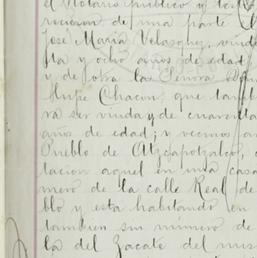 el Notario publico y tes
recieron de una parte
José María Velasquez, viudo
ta y ocho años de edad
y de otra la Señora
lupe Chacon, que tam
ra ser viuda y de cuarenta
años de edad; y vecinos
Pueblo de Atzcapotzalco,
tacion aquel en una casa
mero de la calle Real de
blo y esta habitando en
tambien sin número de
la del Zacate del mis